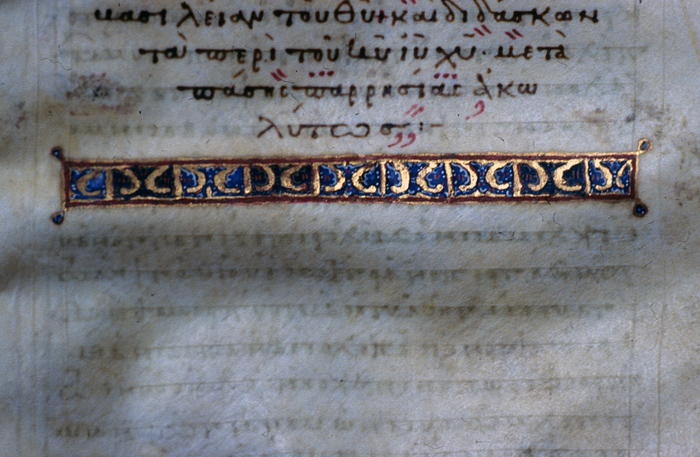 βασιλείαν τοῦ θυ· καὶ διδάσκων
τὰ περὶ τοῦ κυ ιυ χυ· μετὰ
πάσης παρρησίας ἀκω
λύτως:–